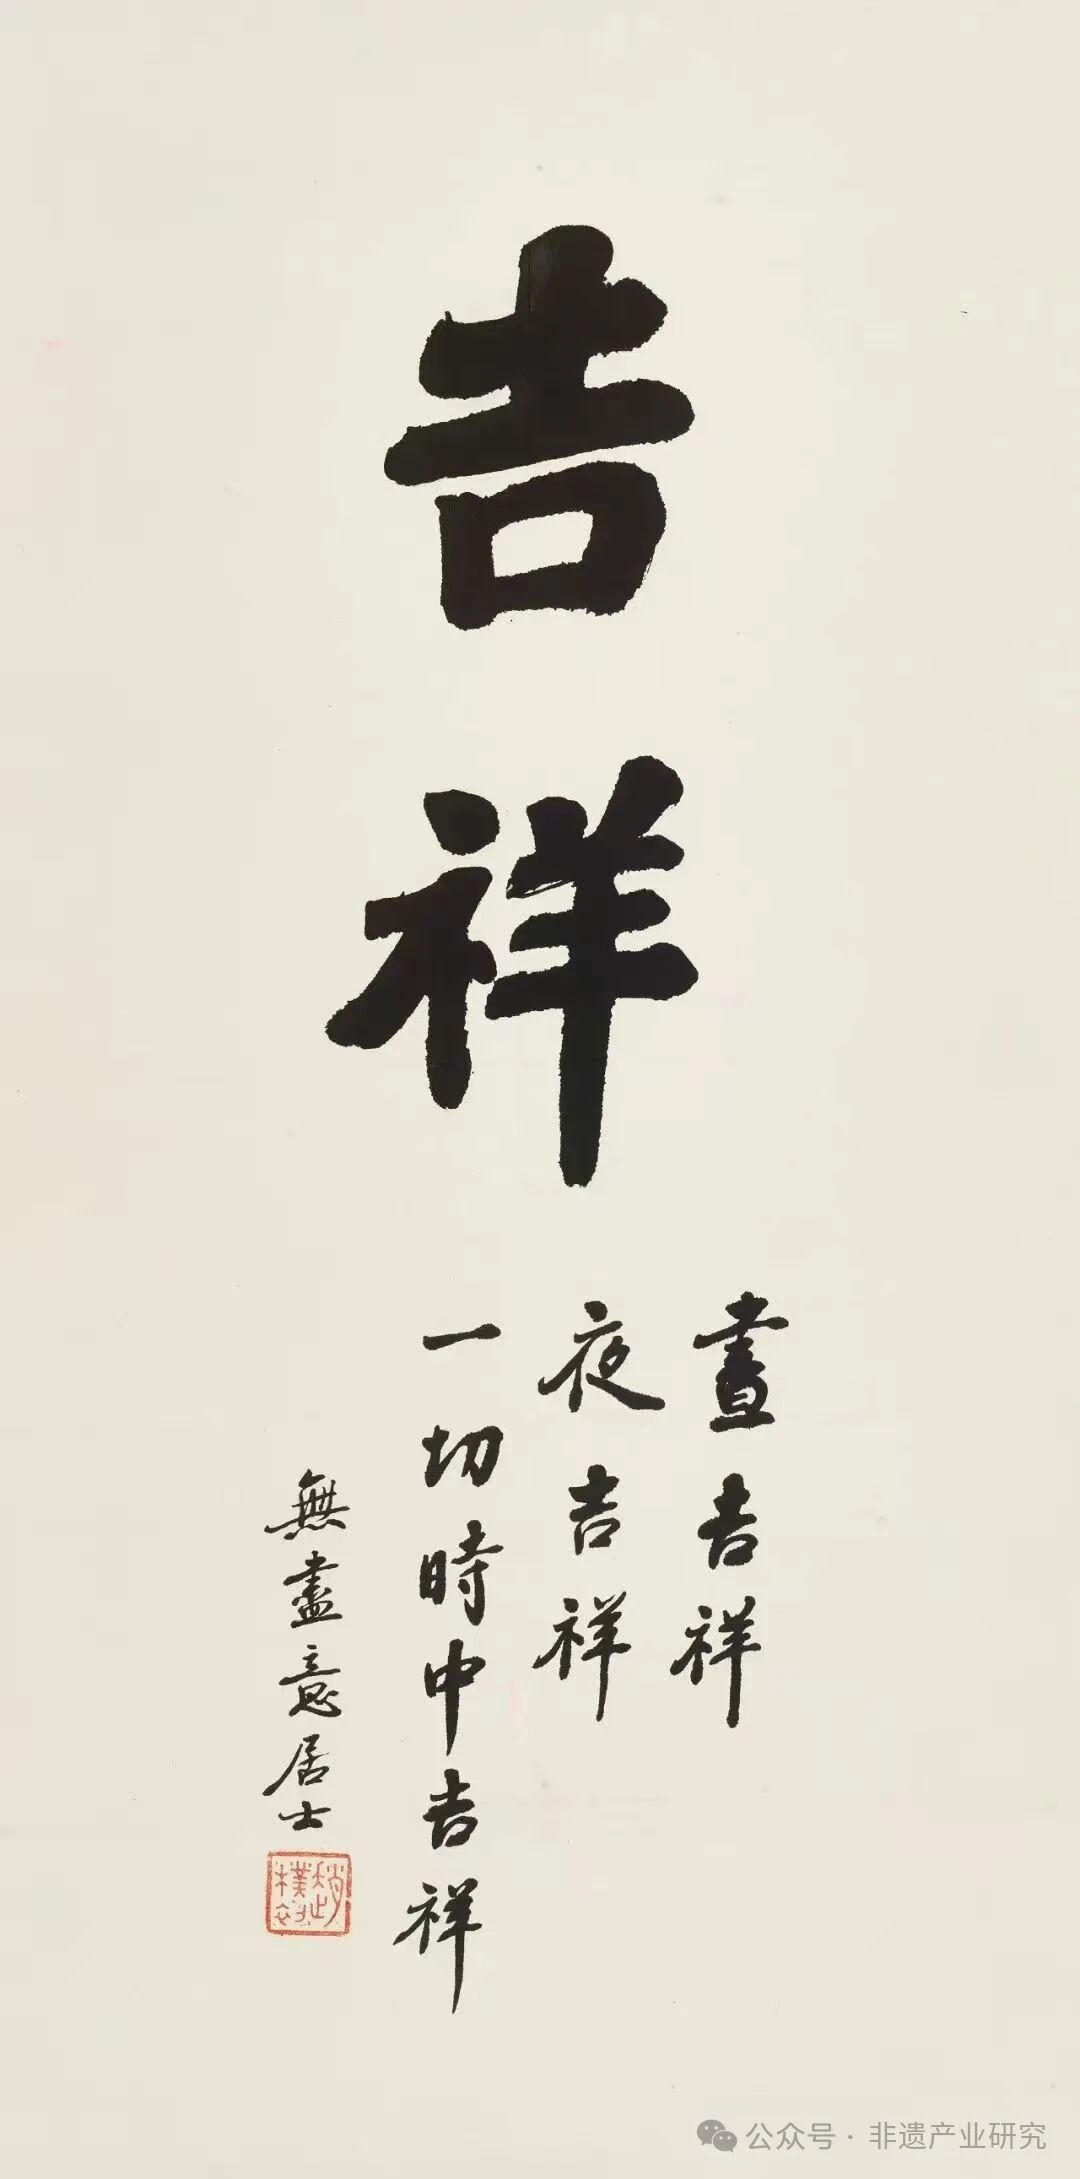 吉祥
晝吉祥
夜吉祥
一切時中吉祥
無盡意居士
趙樸初
公众号·非遗产业研究